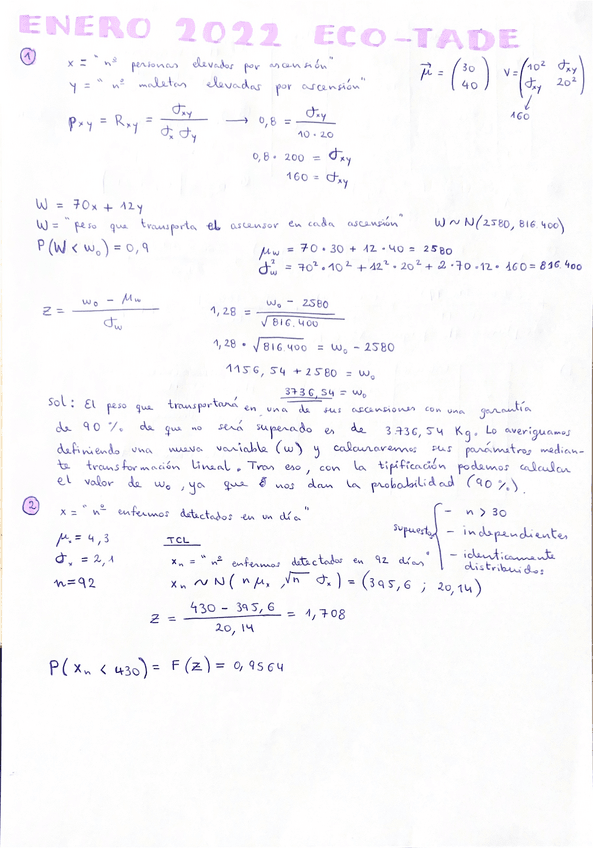 ENERO 2022 ECO-TADE
① x = "nº personas elevados por ascensión"
y = "nº maletas elevadas por ascensión"
μ⃗ = (30 40) V = (10² σxy σxy 20²)
160
ρxy = Rxy = σxy / σx σy → 0,8 = σxy / 10·20
0,8 · 200 = σxy
160 = σxy
W = 70x + 12y
W = "peso que transporta el ascensor en cada ascensión" W ~ N(2580, 816.400)
P(W < w₀) = 0,9 μw = 70 · 30 + 12 · 40 = 2580
σ²w = 70² · 10² + 12² · 20² + 2 · 70 · 12 · 160 = 816.400
Z = w₀ - μw / σw 1,28 = w₀ - 2580 / √816.400
1,28 · √816.400 = w₀ - 2580
1156,54 + 2580 = w₀
3736,54 = w₀
Sol: El peso que transportará en una de sus ascensiones con una garantía
de 90 % de que no será superado es de 3.736,54 Kg. Lo averiguamos
definiendo una nueva variable (w) y calcularemos sus parámetros median-
te transformación lineal. Tras eso, con la tipificación podemos calcular
el valor de w₀, ya que nos dan la probabilidad (90 %).
② x = "nº enfermos detectados en un día"
μx = 4,3 TCL
σx = 2,1 xn = "nº enfermos detectados en 92 días"
n = 92 xn ~ N(n μx, √n σx) = (395,6 ; 20,14)
supuestos { - n > 30
- independientes
- identicamente
distribuidos
Z = 430 - 395,6 / 20,14 = 1,708
P(xn < 430) = F(Z) = 0,9564